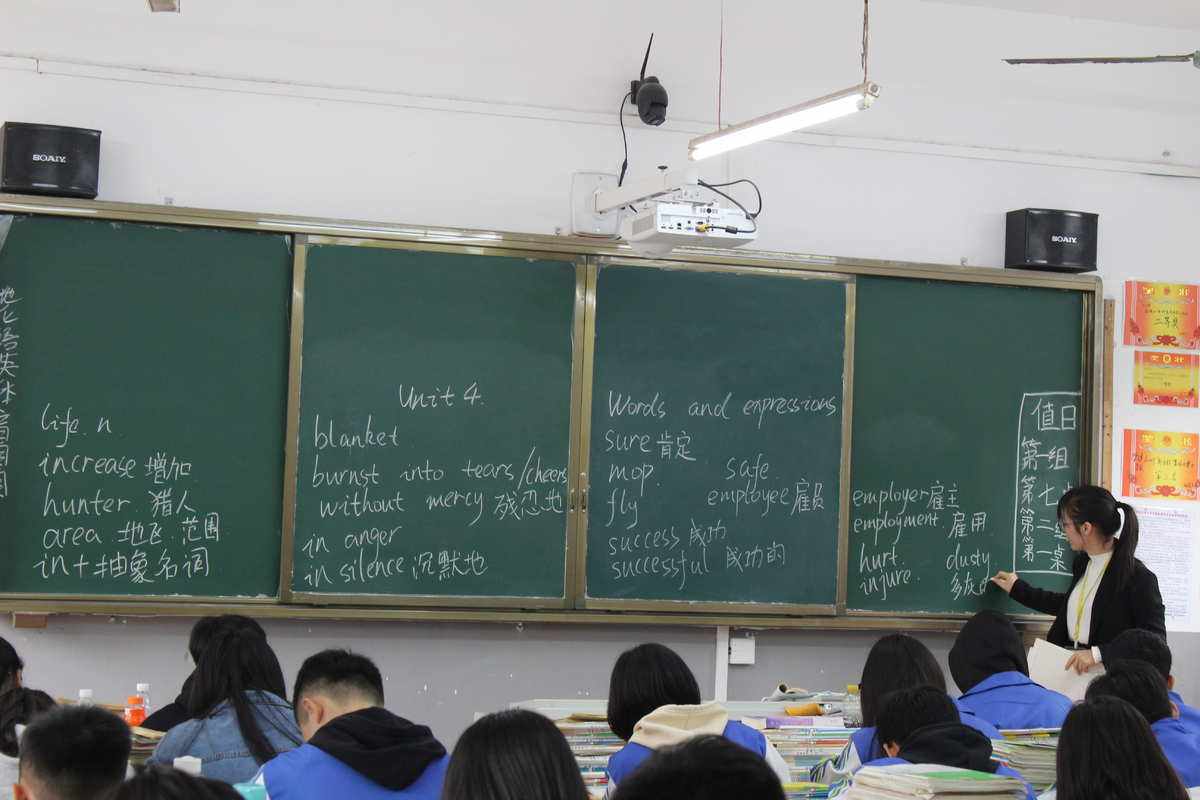 SOAIY
SOAIY
二等奖
地 化 语 英
life. n
increase 增加
hunter. 猎人
area. 范围
in + 抽象名词
Unit 4.
blanket
burnst into tears/cheers
without mercy 残忍地
in anger
in silence 沉默地
Words and expressions
sure 肯定
mop. safe.
fly employee 雇员
success 成功
successful 成功的
employer 雇主
employment. 雇用
hurt. dusty
injure.
值日
第一组
第七
第二
第一桌